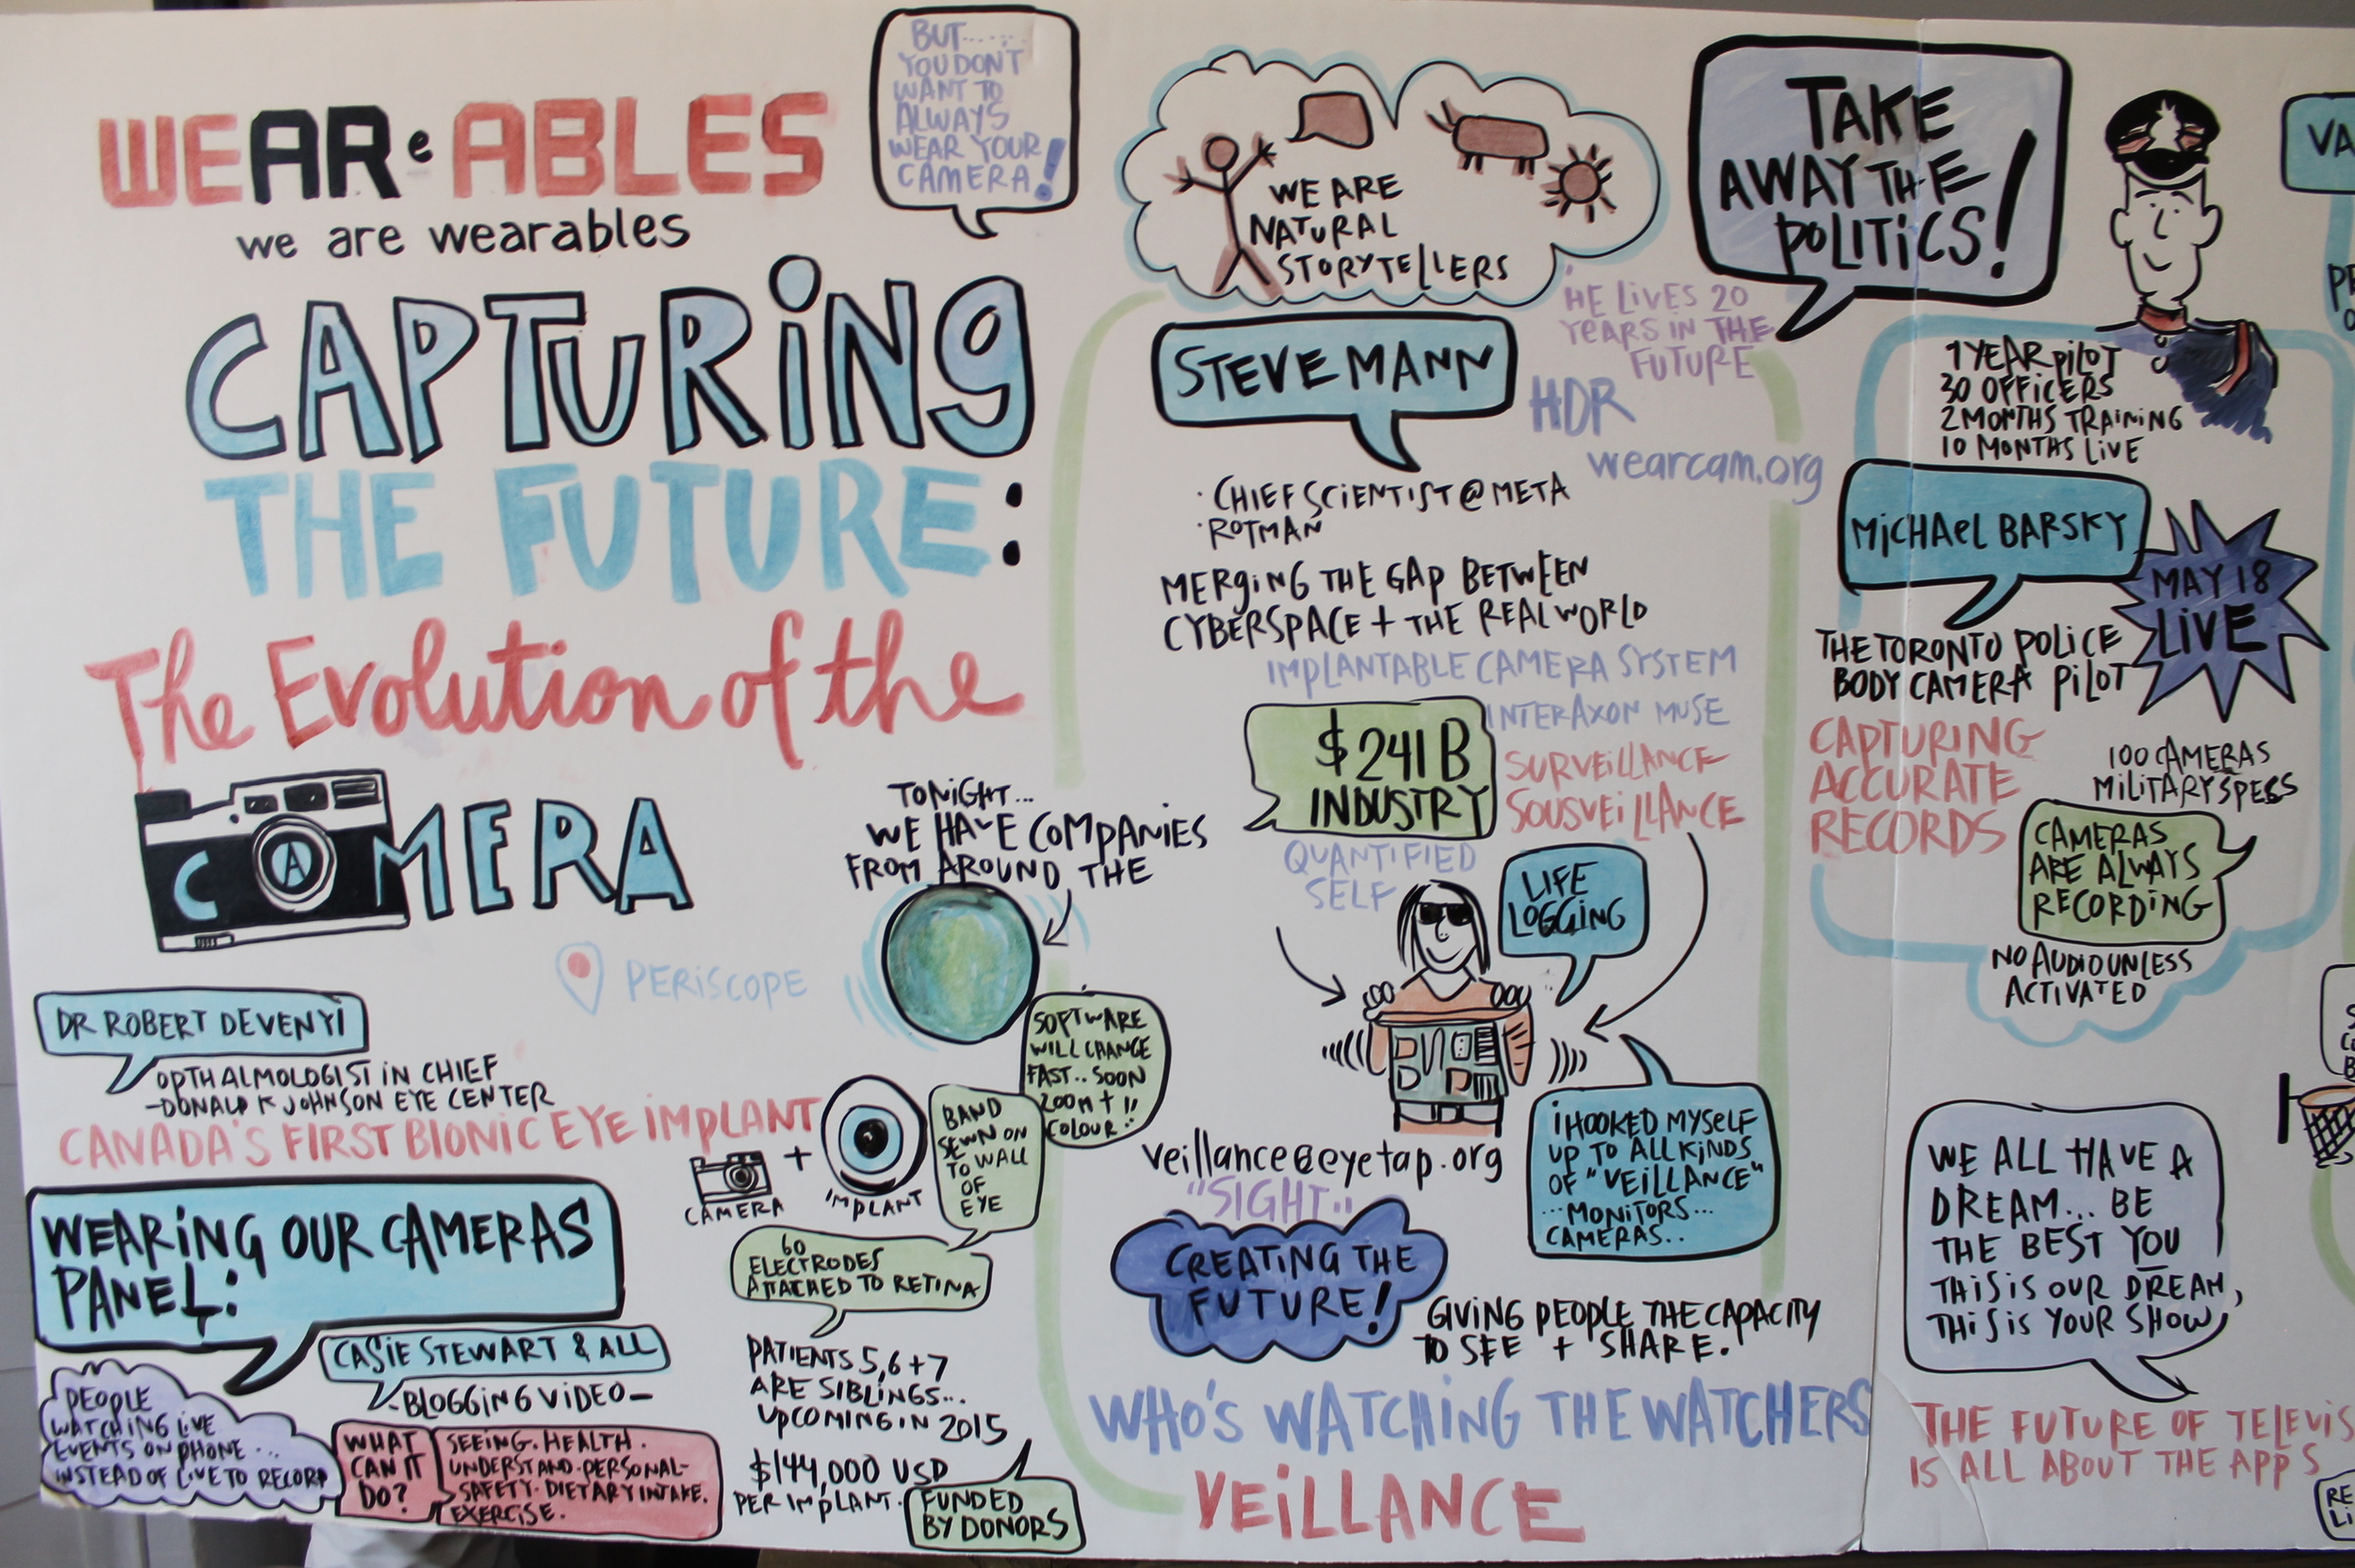 WEAReABLES
we are wearables
CAPTURING
THE FUTURE:
The Evolution of the
CAMERA
BUT......
YOU DON'T
WANT TO
ALWAYS
WEAR YOUR
CAMERA!
TONIGHT...
WE HAVE COMPANIES
FROM AROUND THE
PERISCOPE
DR ROBERT DEVENYI
OPTHALMOLOGIST IN CHIEF
-DONALD K JOHNSON EYE CENTER
CANADA'S FIRST BIONIC EYE IMPLANT
CAMERA
+
IMPLANT
SOFTWARE
WILL CHANGE
FAST.. SOON
ZOOM +
COLOUR!!
BAND
SEWN ON
TO WALL
OF
EYE
60
ELECTRODES
ATTACHED TO RETINA
PATIENTS 5,6+7
ARE SIBLINGS...
UPCOMING IN 2015
$144,000 USD
PER IMPLANT.
FUNDED
BY DONORS
WEARING OUR CAMERAS
PANEL:
CASIE STEWART & ALL
-BLOGGING VIDEO-
PEOPLE
WATCHING LIVE
EVENTS ON PHONE ...
INSTEAD OF LIVE TO RECORD
WHAT
CAN IT
DO?
SEEING. HEALTH.
UNDERSTAND. PERSONAL-
SAFETY. DIETARY INTAKE.
EXERCISE.
WE ARE
NATURAL
STORYTELLERS
STEVE MANN
"HE LIVES 20
YEARS IN THE
FUTURE
HDR
wearcam.org
· CHIEF SCIENTIST @ META
· ROTMAN
MERGING THE GAP BETWEEN
CYBERSPACE + THE REAL WORLD
IMPLANTABLE CAMERA SYSTEM
INTERAXON MUSE
$241B
INDUSTRY
SURVEILLANCE
SOUSVEILLANCE
QUANTIFIED
SELF
LIFE
LOGGING
I HOOKED MYSELF
UP TO ALL KINDS
OF "VEILLANCE"
...MONITORS...
CAMERAS..
veillance@eyetap.org
"SIGHT"
CREATING THE
FUTURE!
GIVING PEOPLE THE CAPACITY
TO SEE + SHARE.
WHO'S WATCHING THE WATCHERS
VEILLANCE
TAKE
AWAY THE
POLITICS!
1 YEAR PILOT
30 OFFICERS
2 MONTHS TRAINING
10 MONTHS LIVE
MICHAEL BARSKY
MAY 18
LIVE
THE TORONTO POLICE
BODY CAMERA PILOT
CAPTURING
ACCURATE
RECORDS
100 CAMERAS
MILITARY SPECS
CAMERAS
ARE ALWAYS
RECORDING
NO AUDIO UNLESS
ACTIVATED
WE ALL HAVE A
DREAM... BE
THE BEST YOU
THIS IS OUR DREAM,
THIS IS YOUR SHOW
THE FUTURE OF TELEVIS
IS ALL ABOUT THE APPS
VA